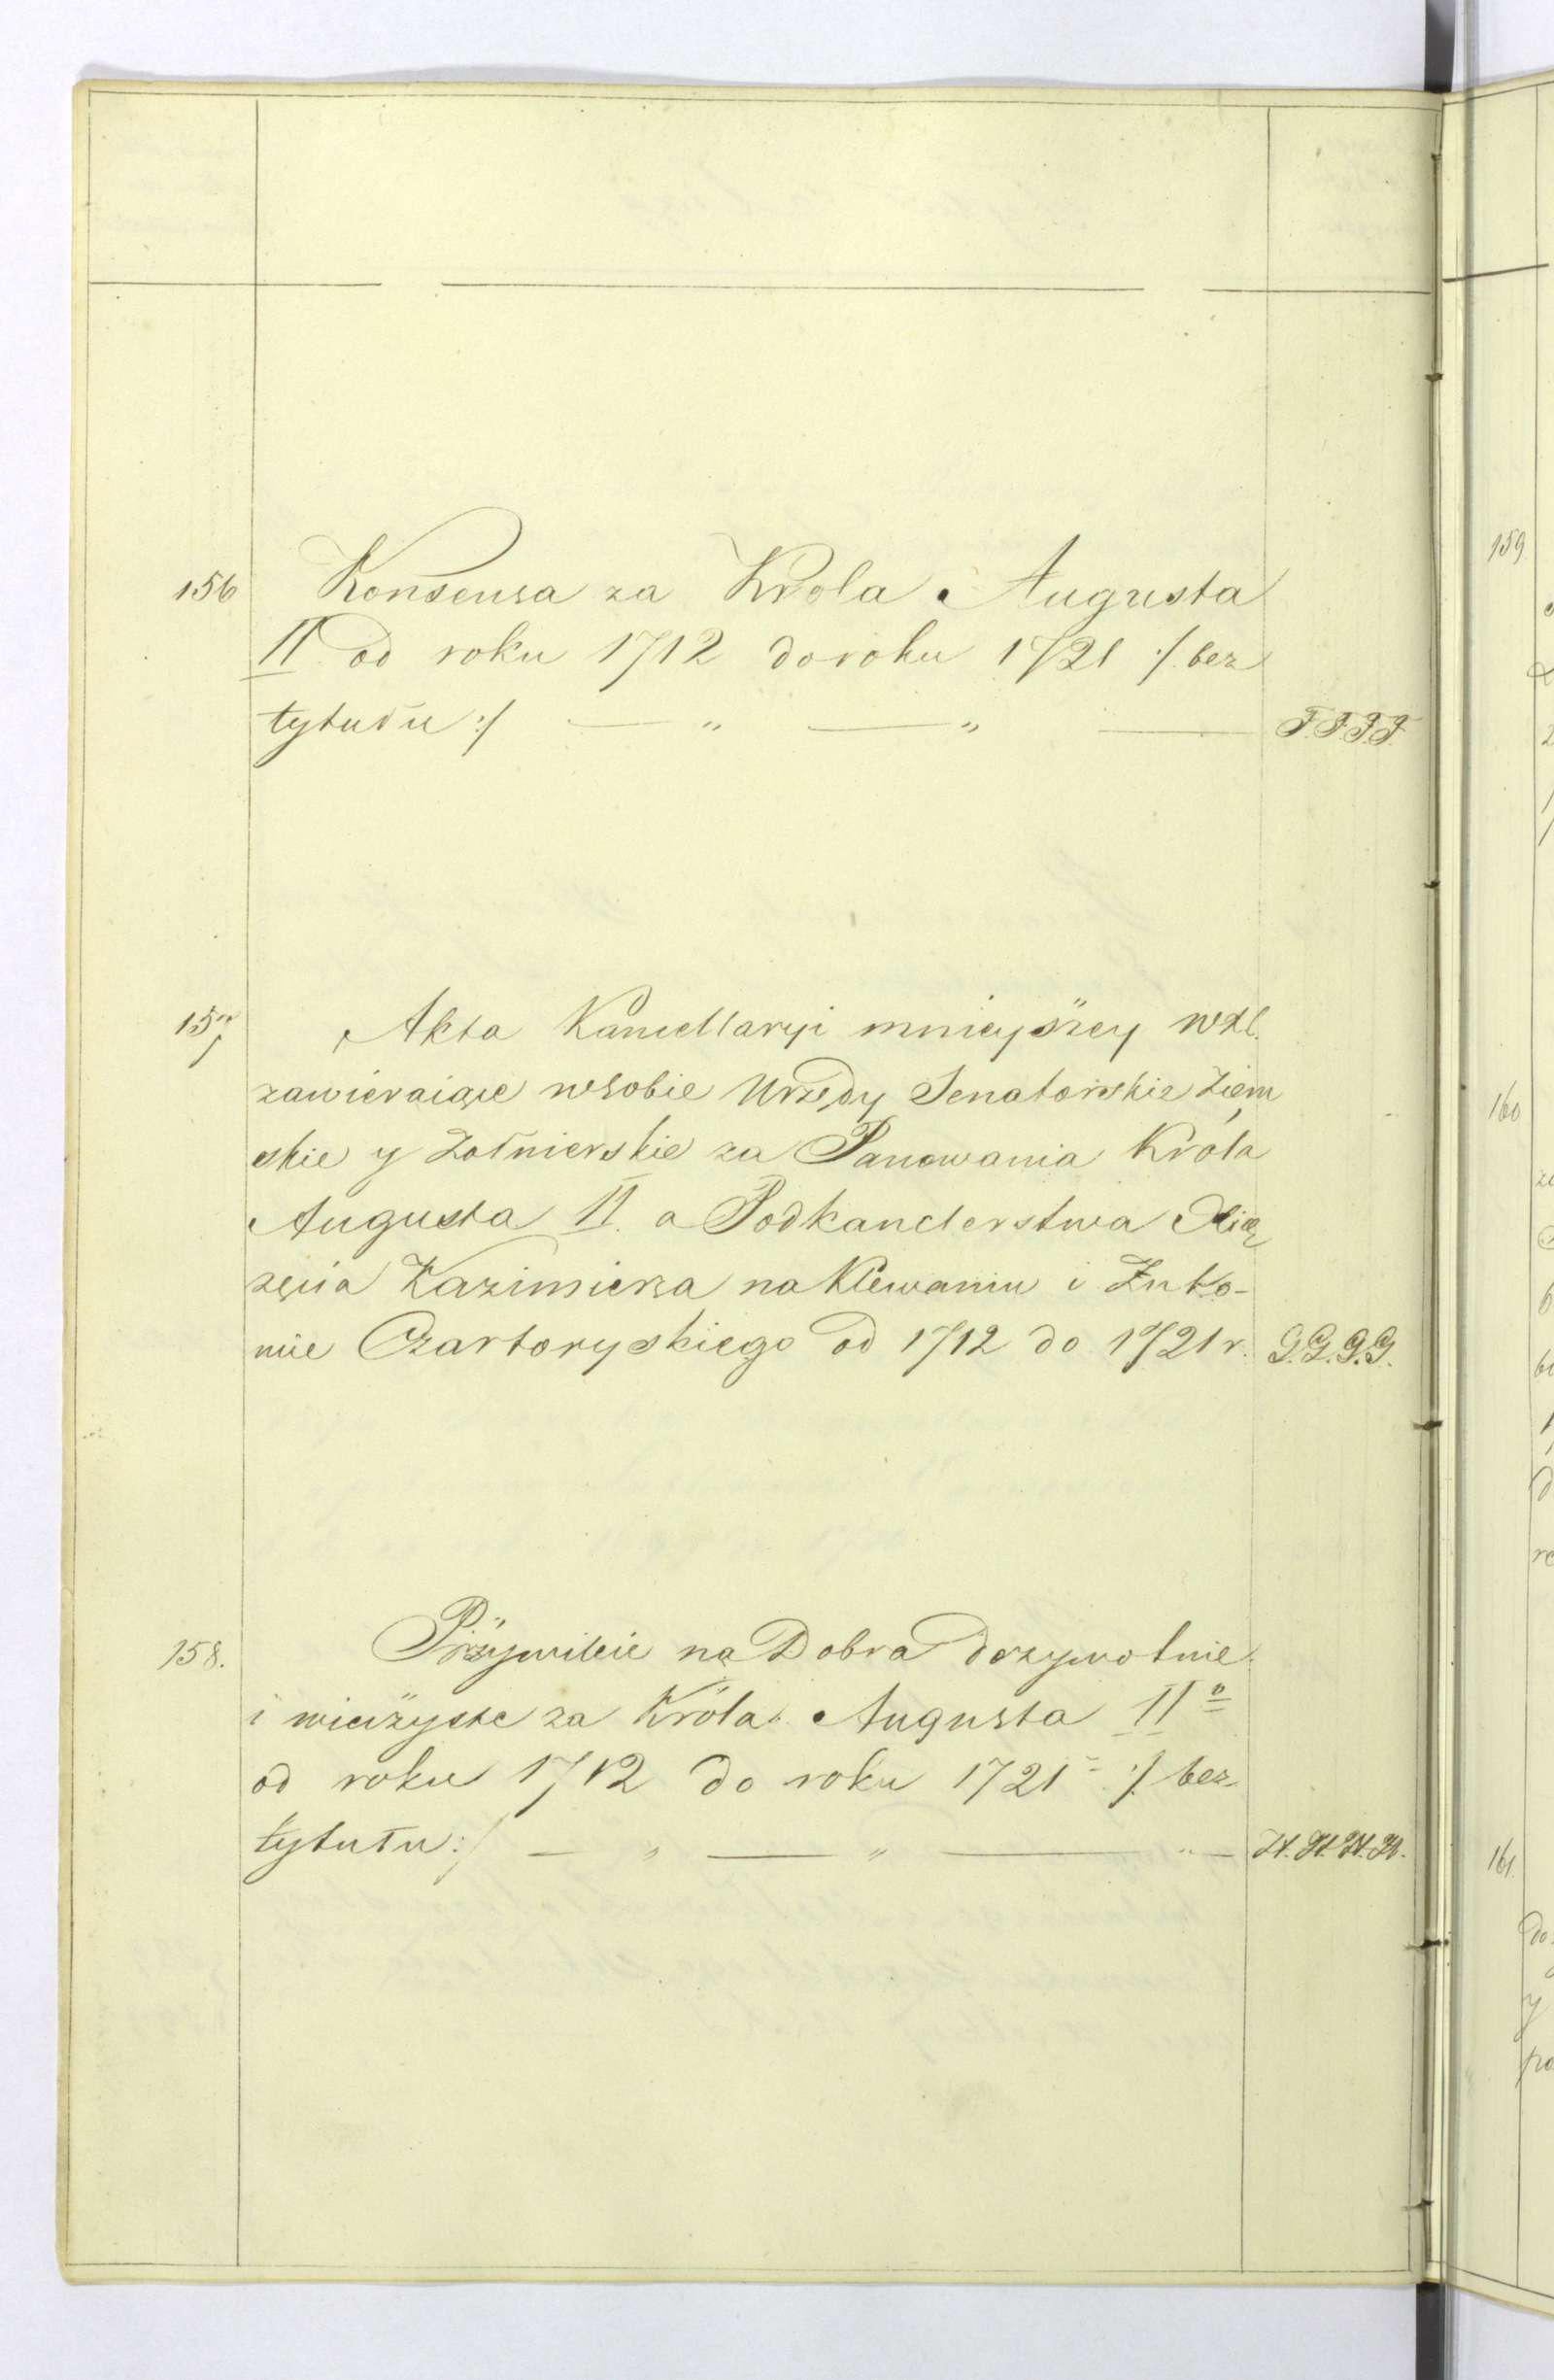 156 Konsensa za Krola Augusta
II od roku 1712 do roku 1721 :/ bez
tytułu :/ — " — " — F.F.F.F.
157 Akta Kancellaryi mnieyszey WXL.
zawieraiące wsobie Urzędy Senatorskie Ziem
skie y Żołnierskie za Panowania Króla
Augusta II. a Podkanclerstwa Xią
żęcia Kazimierza na Klewaniu i Żuko-
wie Czartoryskiego od 1712 do 1721 r. G.G.G.G.
158. Przywileie na Dobra dożywotnie
i wieczyste za Króla Augusta IIº
od roku 1712 do roku 1721 :/ bez
tytułu :/ — " — " — " — H.H.H.H.
159
160
161.